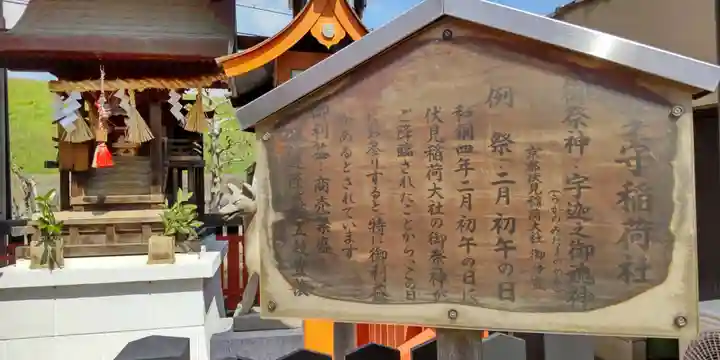 守稲荷社
御祭神・宇迦之御魂神
京都伏見稲荷大社 御分霊
例 祭・二月初午の日
和銅四年二月初午の日に
伏見稲荷大社の御祭神が
ご降臨されたことから、この日
にお参りすると特に御利益
があるとされています
御利益・商売繁盛
五穀豊穣